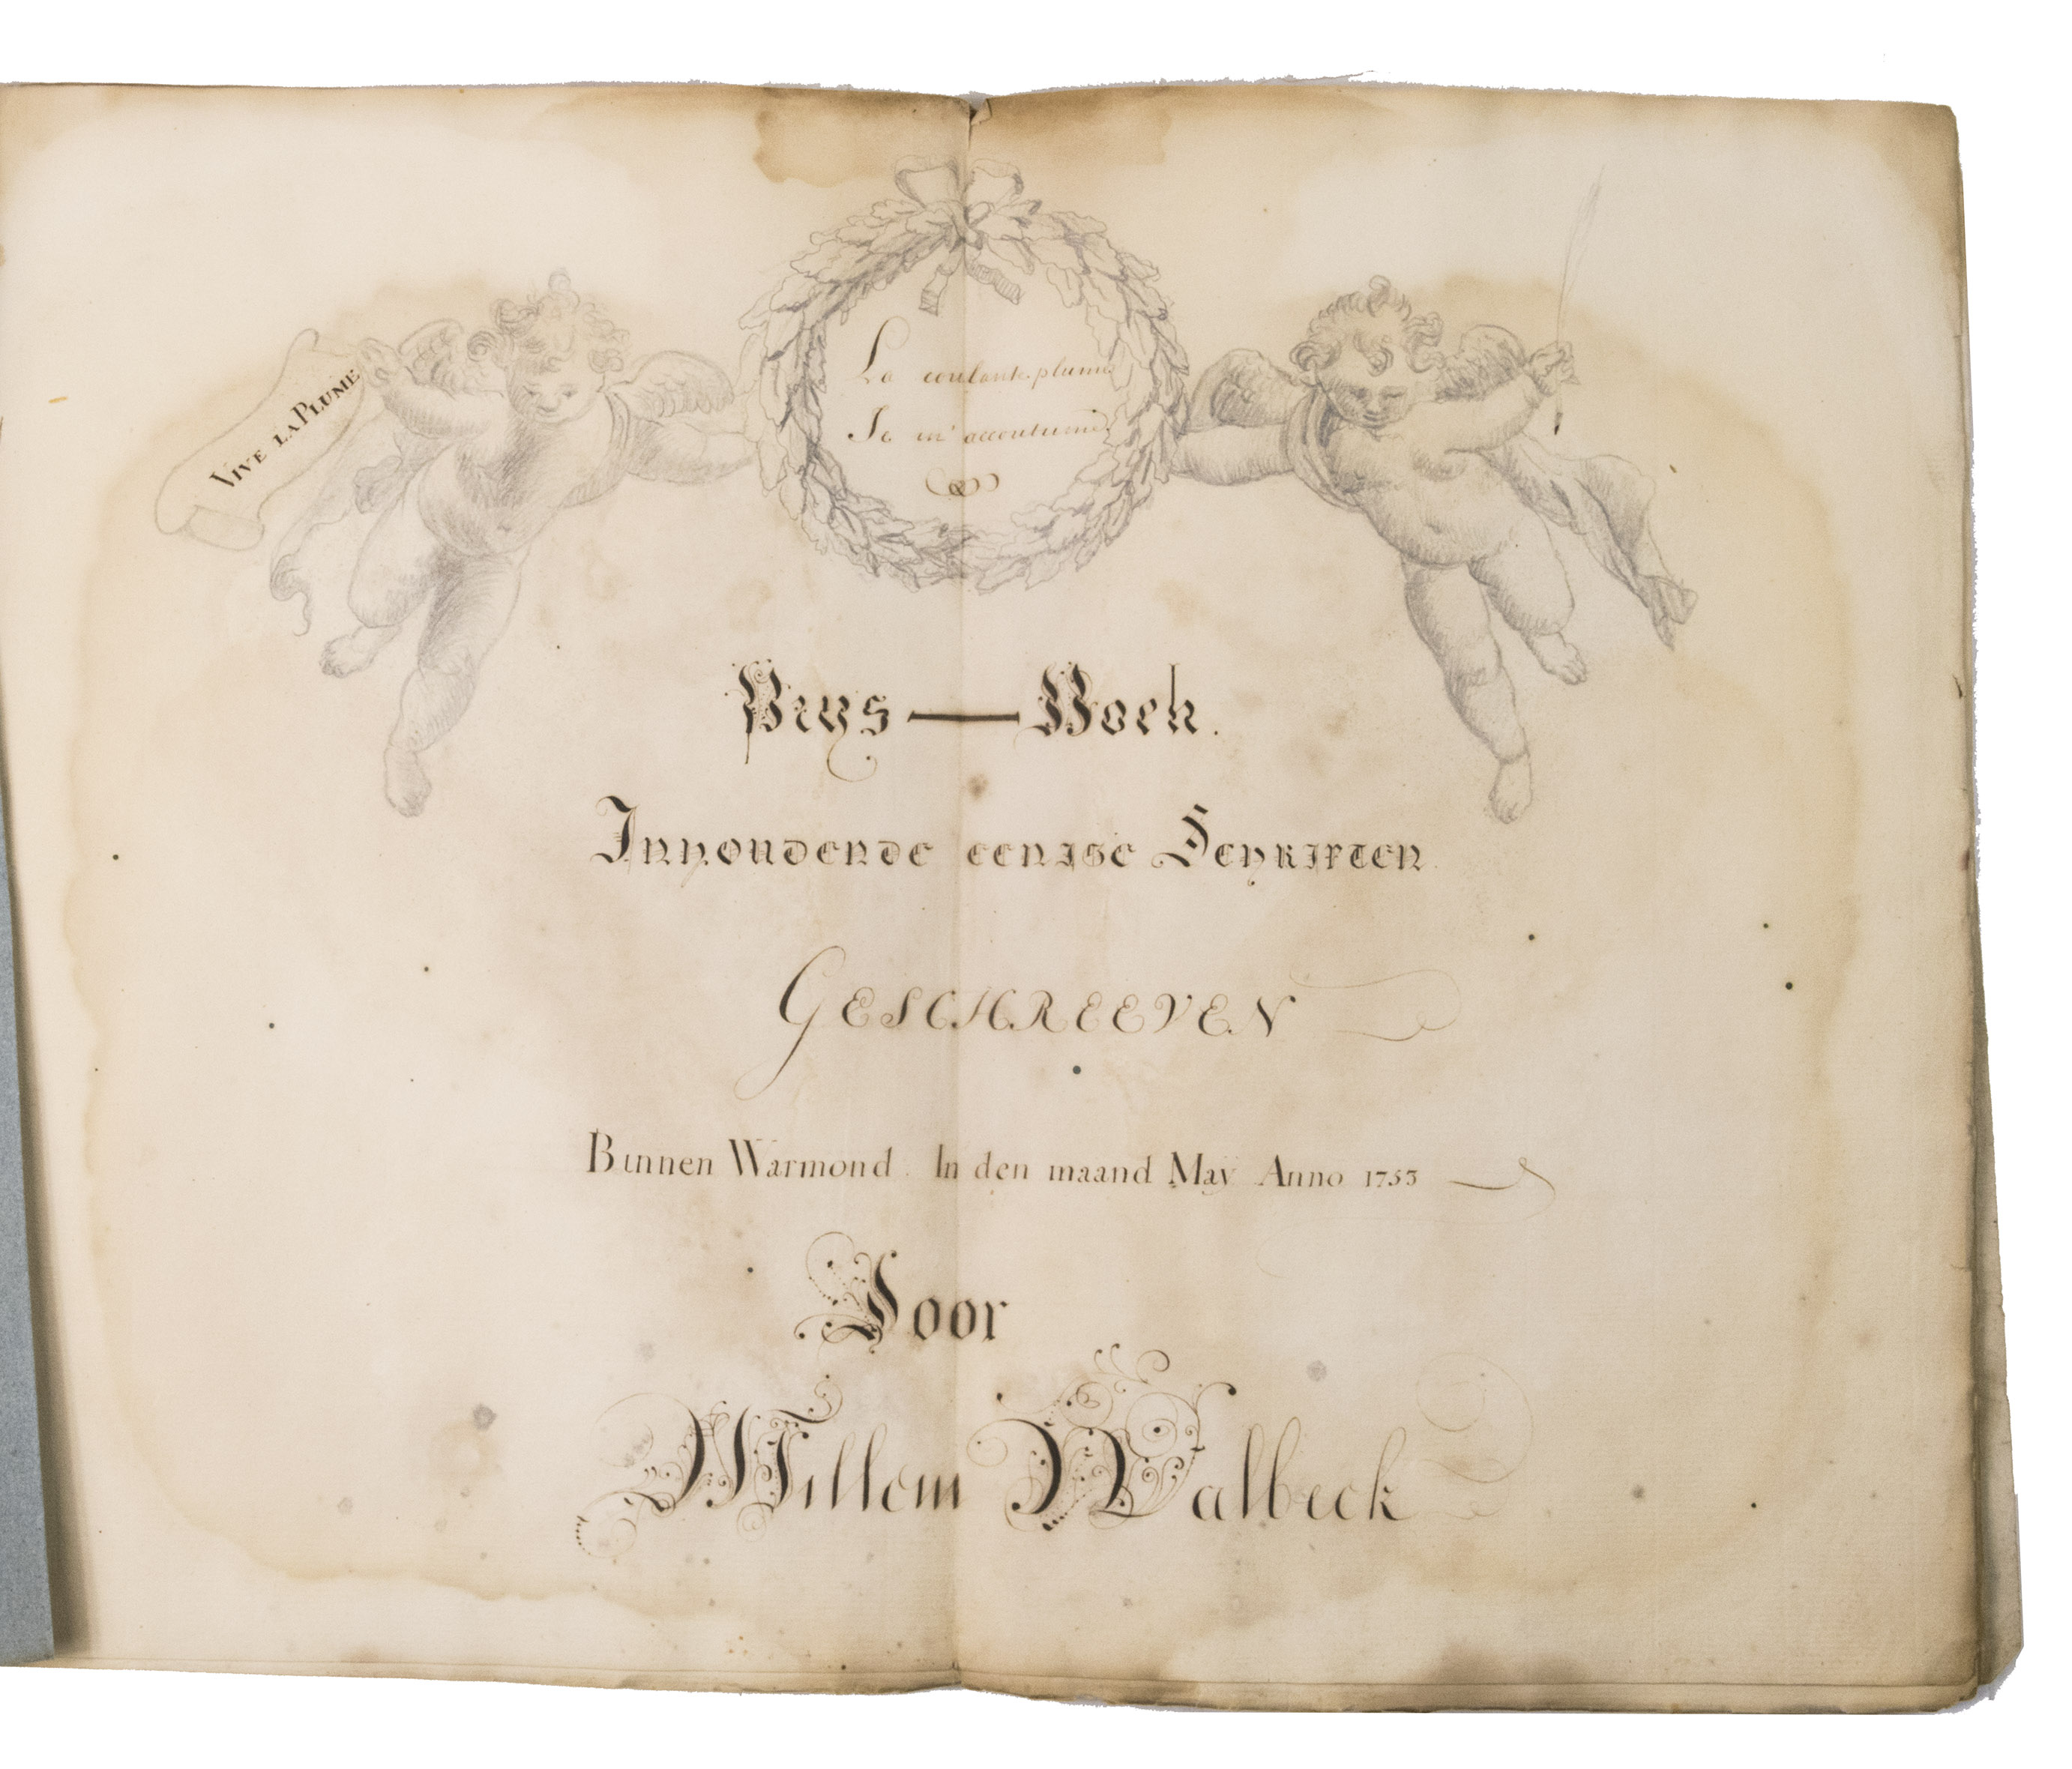 VIVE LA PLUME
La coulante plume
Je m'accoutume
Prys — Boek.
Inhoudende eenige Schriften
GESCHREEVEN
Binnen Warmond. In den maand May Anno 1753
Door
Willem Walbeek